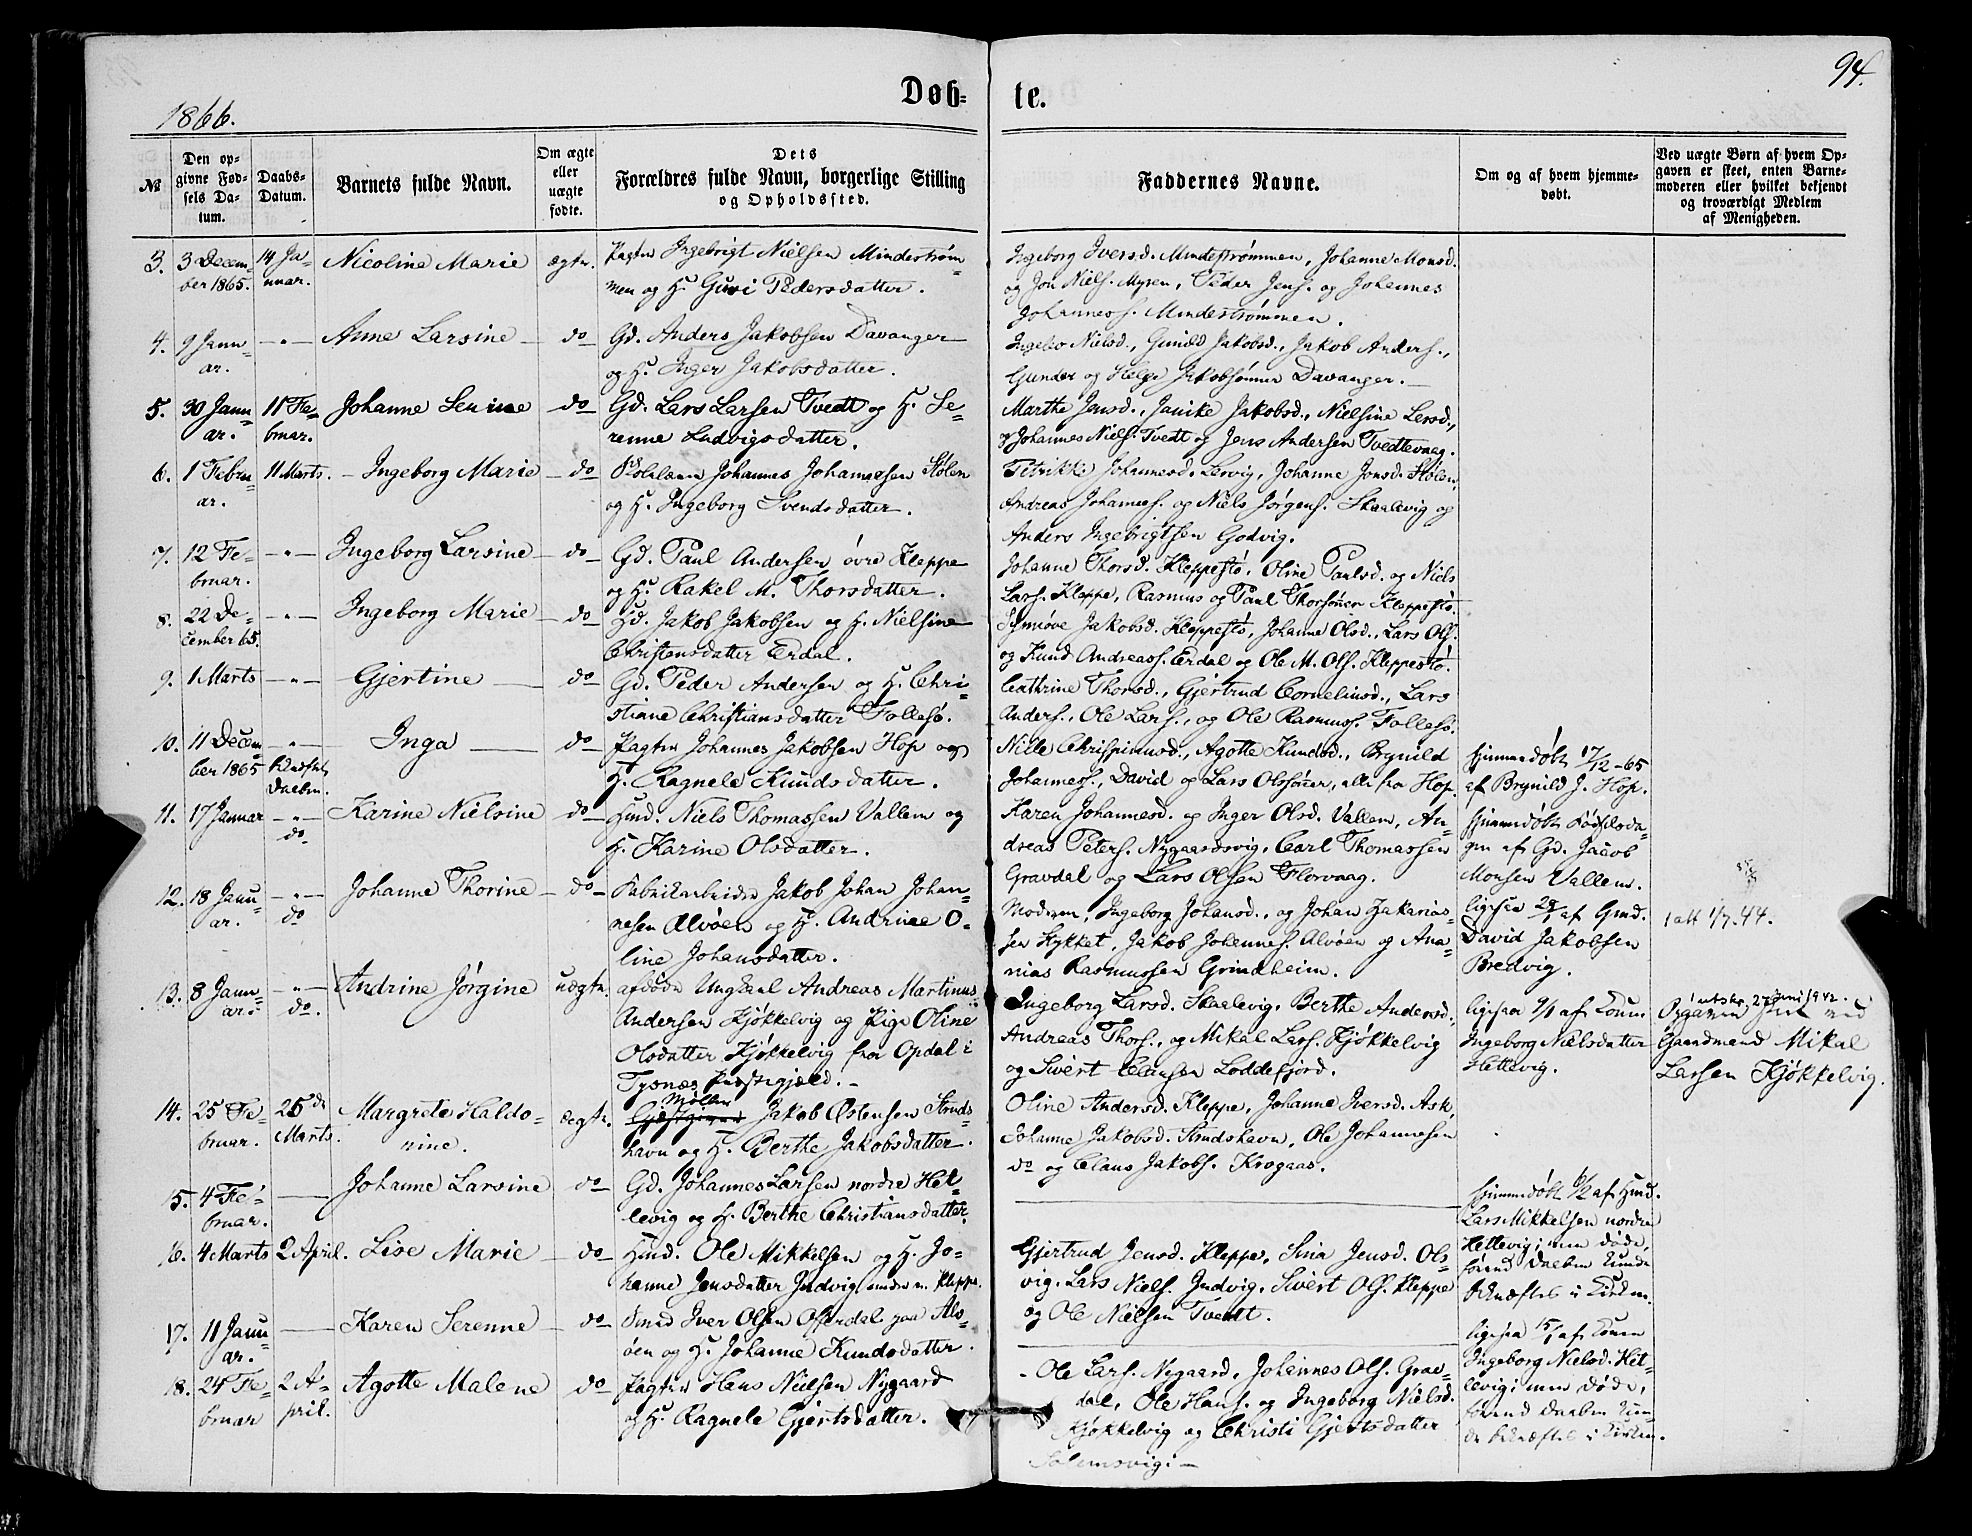 94.
1866.
Døb-
te.
№
Den op-
givne Fød-
sels Da-
tum.
Daabs-
Datum.
Barnets fulde Navn.
Om ægte
eller
uægte
fødte.
Dets
Forældres fulde Navn, borgerlige Stilling
og Opholdssted.
Faddernes Navne.
Om og af hvem hjemme-
døbt.
Ved uægte Børn af hvem Op-
gaven er skeet, enten Barne-
moderen eller hvilket bekjendt
og troværdigt Medlem
af Menigheden.
3.
3 Decem-
ber 1865.
14 Ja-
nuar.
Nicoline Marie
ægte.
Pagter Ingebrigt Nielsen Mindestrøm-
men og H. Guri Pedersdatter.
Ingeborg Iversd. Mindestrømmen, Johanne Monsd.
og Jon Niels. Myren, Peder Jens. og Johannes
Johanness. Mindestrømmen.
4.
9 Janu-
ar.
— " —
Anne Larsine
do
Gd. Anders Jakobsen Davanger
og H. Inger Jakobsdatter.
Nielsd., Jakobsd., Jakob Anders.,
Gunder og Helge Jakobsønner Davanger.
5.
30 Janu-
ar.
11 Fe-
bruar.
Johanne
do
Gd. Lars Larsen Tvedt og H. Se-
renne Ludvigsdatter.
Marthe Jensd., Janike Jakobsd., Nielsine Larsd.,
og Johannes Niels. Tvedt og Jens Andersen Tvedtevaag.
6.
1 Febru-
ar.
11 Marts.
Ingeborg Marie
do
Johannes Johannessen Stølen
og H. Ingeborg Svendsdatter.
Johannesd. Lervig, Johanne Jonsd. Stølen,
Andreas Johanness. og Niels Jørgens. Skaalevig og
Anders Ingebrigtsen Godvig.
7.
12 Fe-
bruar.
— " —
Ingeborg Larsine
do
Gd. Paul Andersen øvre Kleppe
og H. Rakel M. Thorsdatter.
Johanne Thorsd. Kleppestø, Oline Paulsd. og Niels
Lars. Kleppe, Rasmus og Paul Thorsønner Kleppestø.
8.
22 De-
cember 65.
— " —
Ingeborg Marie
do
Gd. Jakob Jakobsen og H. Nielsine
Christensdatter Erdal.
Synnøve Jakobsd. Kleppestø, Johanne Olsd., Lars Ols.
og Knud Andreass. Erdal og Ole M. Ols. Kleppestø.
9.
1 Marts
— " —
Gjertine
do
Gd. Peder Andersen og H. Chri-
stiane Christiansdatter Follesø.
Cathrine Thorsd., Gjertrud Corneliusd., Lars
Anders., Ole Lars., og Ole Rasmuss. Follesø.
10.
11 Decem-
ber 1865
— " —
Daaben.
Inga
do
Pagter Johannes Jakobsen Hop og
H. Ragnele Knudsdatter.
Nille Chrispinusd., Agotte Knudsd., Brynild
Johanness., David og Lars Olssøner, alle fra Hop.
hjemmedøbt 17/12-65
af Brynild J. Hop.
11.
17 Januar
— " —
do.
Karine Nielsine
do
Hmd. Niels Thomassen Vallem og
H. Karine Olsdatter.
Karen Johannesd. og Inger Olsd. Vallem, An-
dreas Peters. Nygaardsvig, Carl Thomassen
Gravdal og Lars Olsen Florvaag.
hjemmedøbt Fødselsda-
gen af Gd. Jacob
Monsen Vallem.
12.
18 Janu-
ar.
— " —
do
Johanne Thorine
do
Fabrikarbeider Jakob Johan Johan-
nesen Alvøen og H. Andrine O-
line Johansdatter.
Moderen, Ingeborg Johansd., og Johan Zakarias-
sen Stykket, Jakob Johanness. Alvøen og Ana-
nias Rasmussen Grindheim.
ligesaa 28/1 af Gmd.
David Jakobsen
Bredvig.
1 att 1/7.44.
13.
8 Janu-
ar.
— " —
do.
Andrine Jørgine
uægte.
afdøde Ungkarl Andreas Martinus
Andersen Kjøkkelvig og Pige Oline
Olsdatter Kjøkkelvig fra Opdal i
Tysnæs Præstegjæld.
Ingeborg Larsd. Skaalevig, Berthe Andersd.,
Andreas Thors., og Mikal Lars. Kjøkkelvig
og Sivert Clausen Loddefjord.
ligesaa 9/1 af Konen
Ingeborg Nielsdatter
Hettevig.
utskr. 27 juni 1942.
Opgaven skeet ved
Gaardmand Mikal
Larsen Kjøkkelvig.
14.
25 Fe-
bruar.
25de
Marts.
Margrete Haldo-
rine.
ægte.
Møller
Gjæstgiver Jakob Østensen Struds-
havn og H. Berthe Jakobsdatter.
Oline Andersd. Kleppe, Johanne Iversd. Ask,
Johanne Jakobsd. Strudshavn, Ole Johannesen
do og Claus Jakobs. Krogaas.
15.
4 Fe-
bruar.
Johanne Larsine
do
Gd. Johannes Larsen nordre Het-
levig og H. Berthe Christiansdatter.
hjemmedøbt 6/2 af Hmd.
Lars Mikkelsen nordre
Hettevig; men døde,
førend Daaben kunde
bekræftes i Kirken.
16.
4 Marts
2 April.
Lise Marie
do
Hmd. Ole Mikkelsen og H. Jo-
hanne Jensdatter Indvig under n. Kleppe.
Gjertrud Jensd. Kleppe, Sina Jensd. Ols-
vig, Lars Niels. Indvig, Sivert Ols. Kleppe
og Ole Nielsen Tvedt.
17.
11 Janu-
ar.
Karen Serenne
do
Smed Iver Olsen Osterdal paa Alv-
øen og H. Johanne Knudsdatter.
ligesaa 15/1 af Konen
Ingeborg Nielsd. Het-
levig; men døde,
førend Daaben kun-
de bekræftes i Kirken.
18.
24 Fe-
bruar
2 A-
pril.
Agotte Malene
do
Pagter Hans Nielsen Nygaard
og H. Ragnele Gjertsdatter.
Ole Lars. Nygaard, Johannes Ols. Grav-
dal, Ole Hans. og Ingeborg Nielsd.
Kjøkkelvig og Christi Gjertsdatter
Salemsvig.